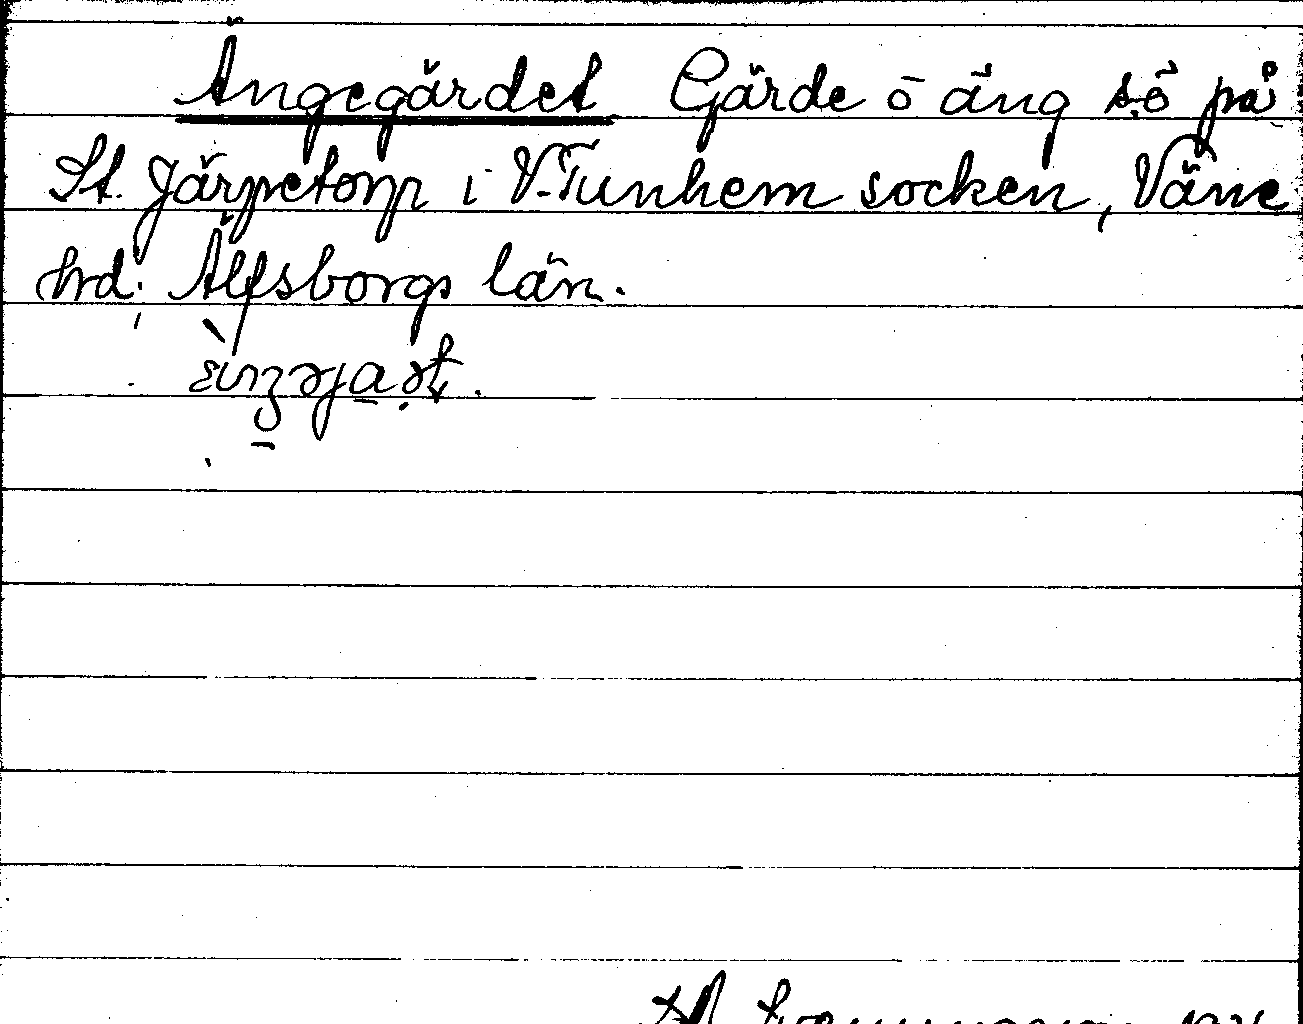 Ängegärdet Gärde o äng sö på
St. Järpetorp i V-Tunhem socken, Väne
hrd. Älfsborgs län.